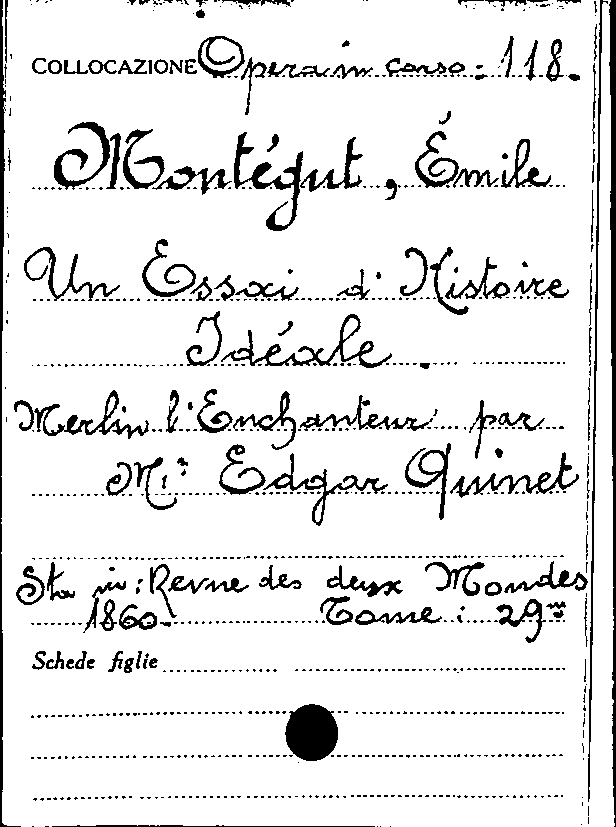 COLLOCAZIONE Opera in corso = 118.
Montégut, Émile
Un Essai d'Histoire
Idéale.
Merlin l'Enchanteur par
M.r Edgar Quinet
Sta in: Revue des deux Mondes
1860. Tome: 29me
Schede figlie